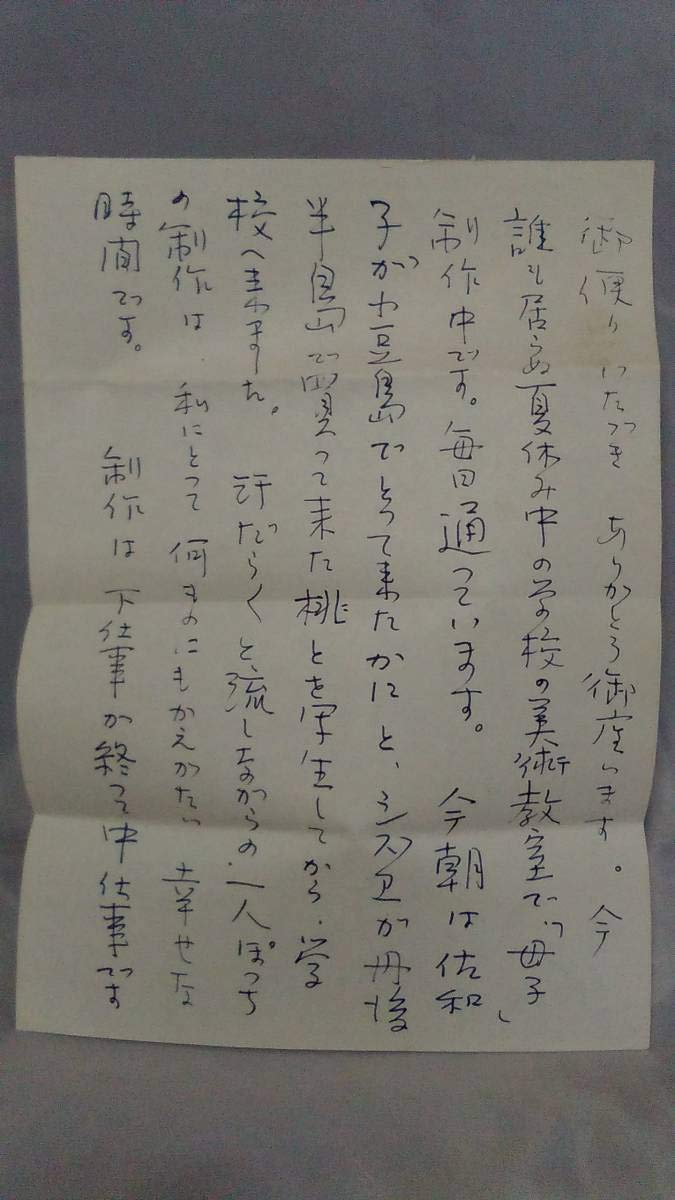 御便りいたゞき ありがとう御座います。今
誰も居らぬ夏休み中の学校の美術教室で、「母子」
制作中です。毎日通っています。 今朝は佐和
子が小豆島でとって来たかにと、シズ卫が丹後
半島宮で買って来た桃とを写生してから、学
校へ来ました。 汗だらくと流しながらの一人ぽっち
の制作は、私にとって何ものにもかえがたい幸せな
時間です。 制作は下仕事が終って中仕事です